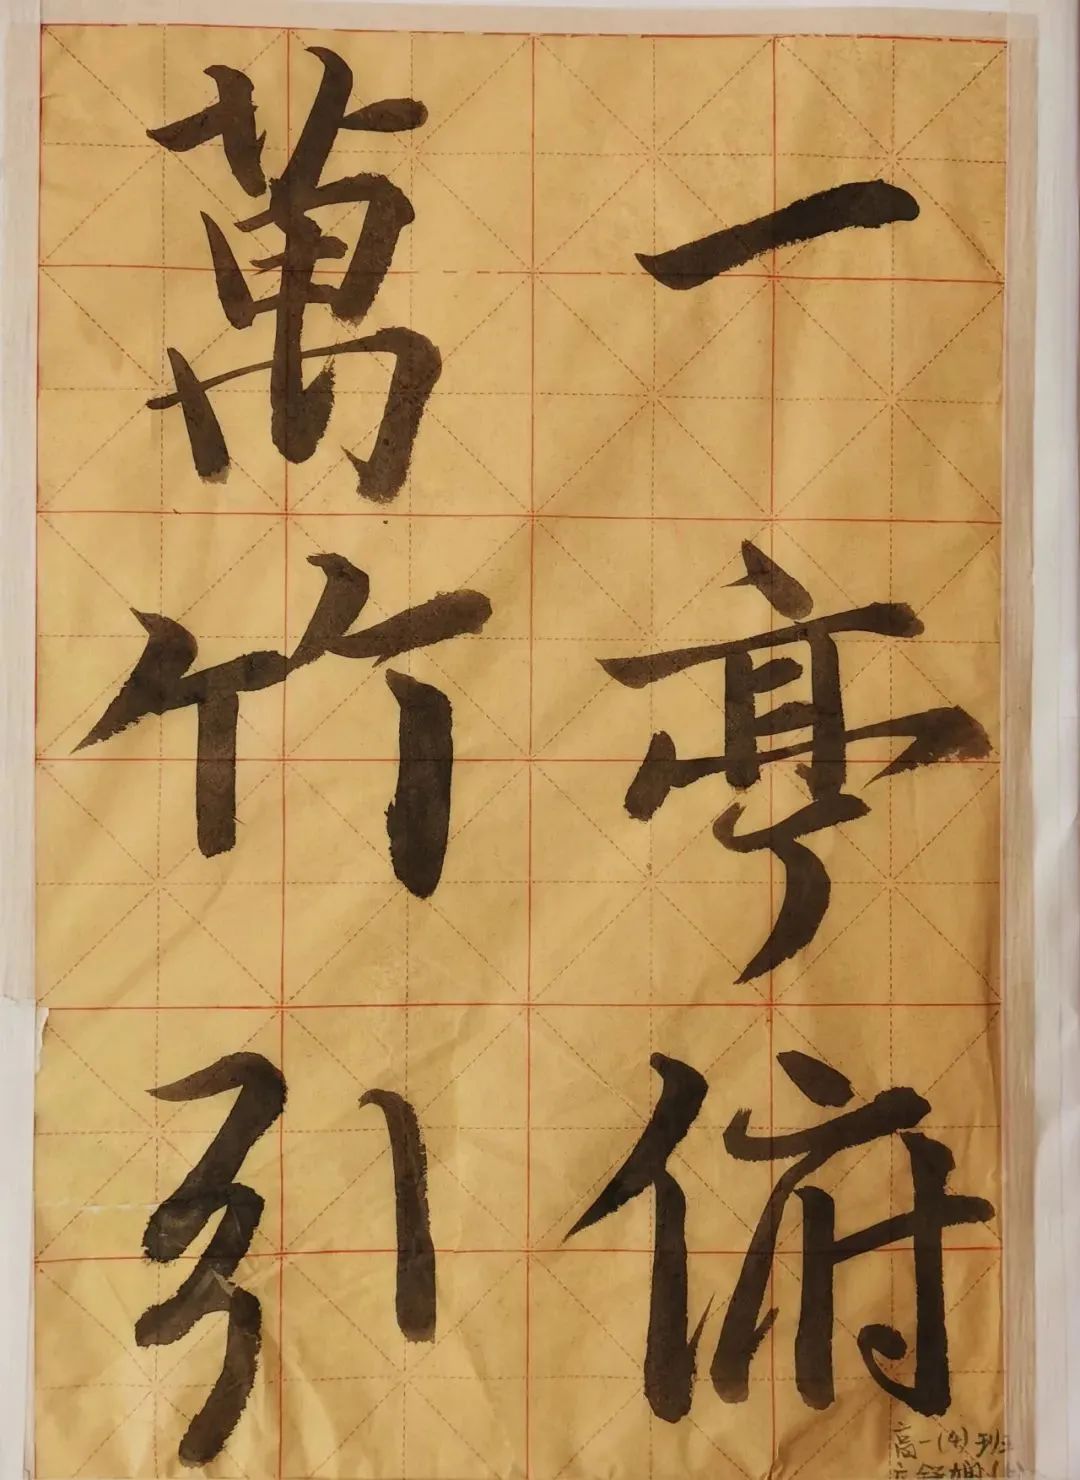 一亭俯
萬竹引
高一(4)班